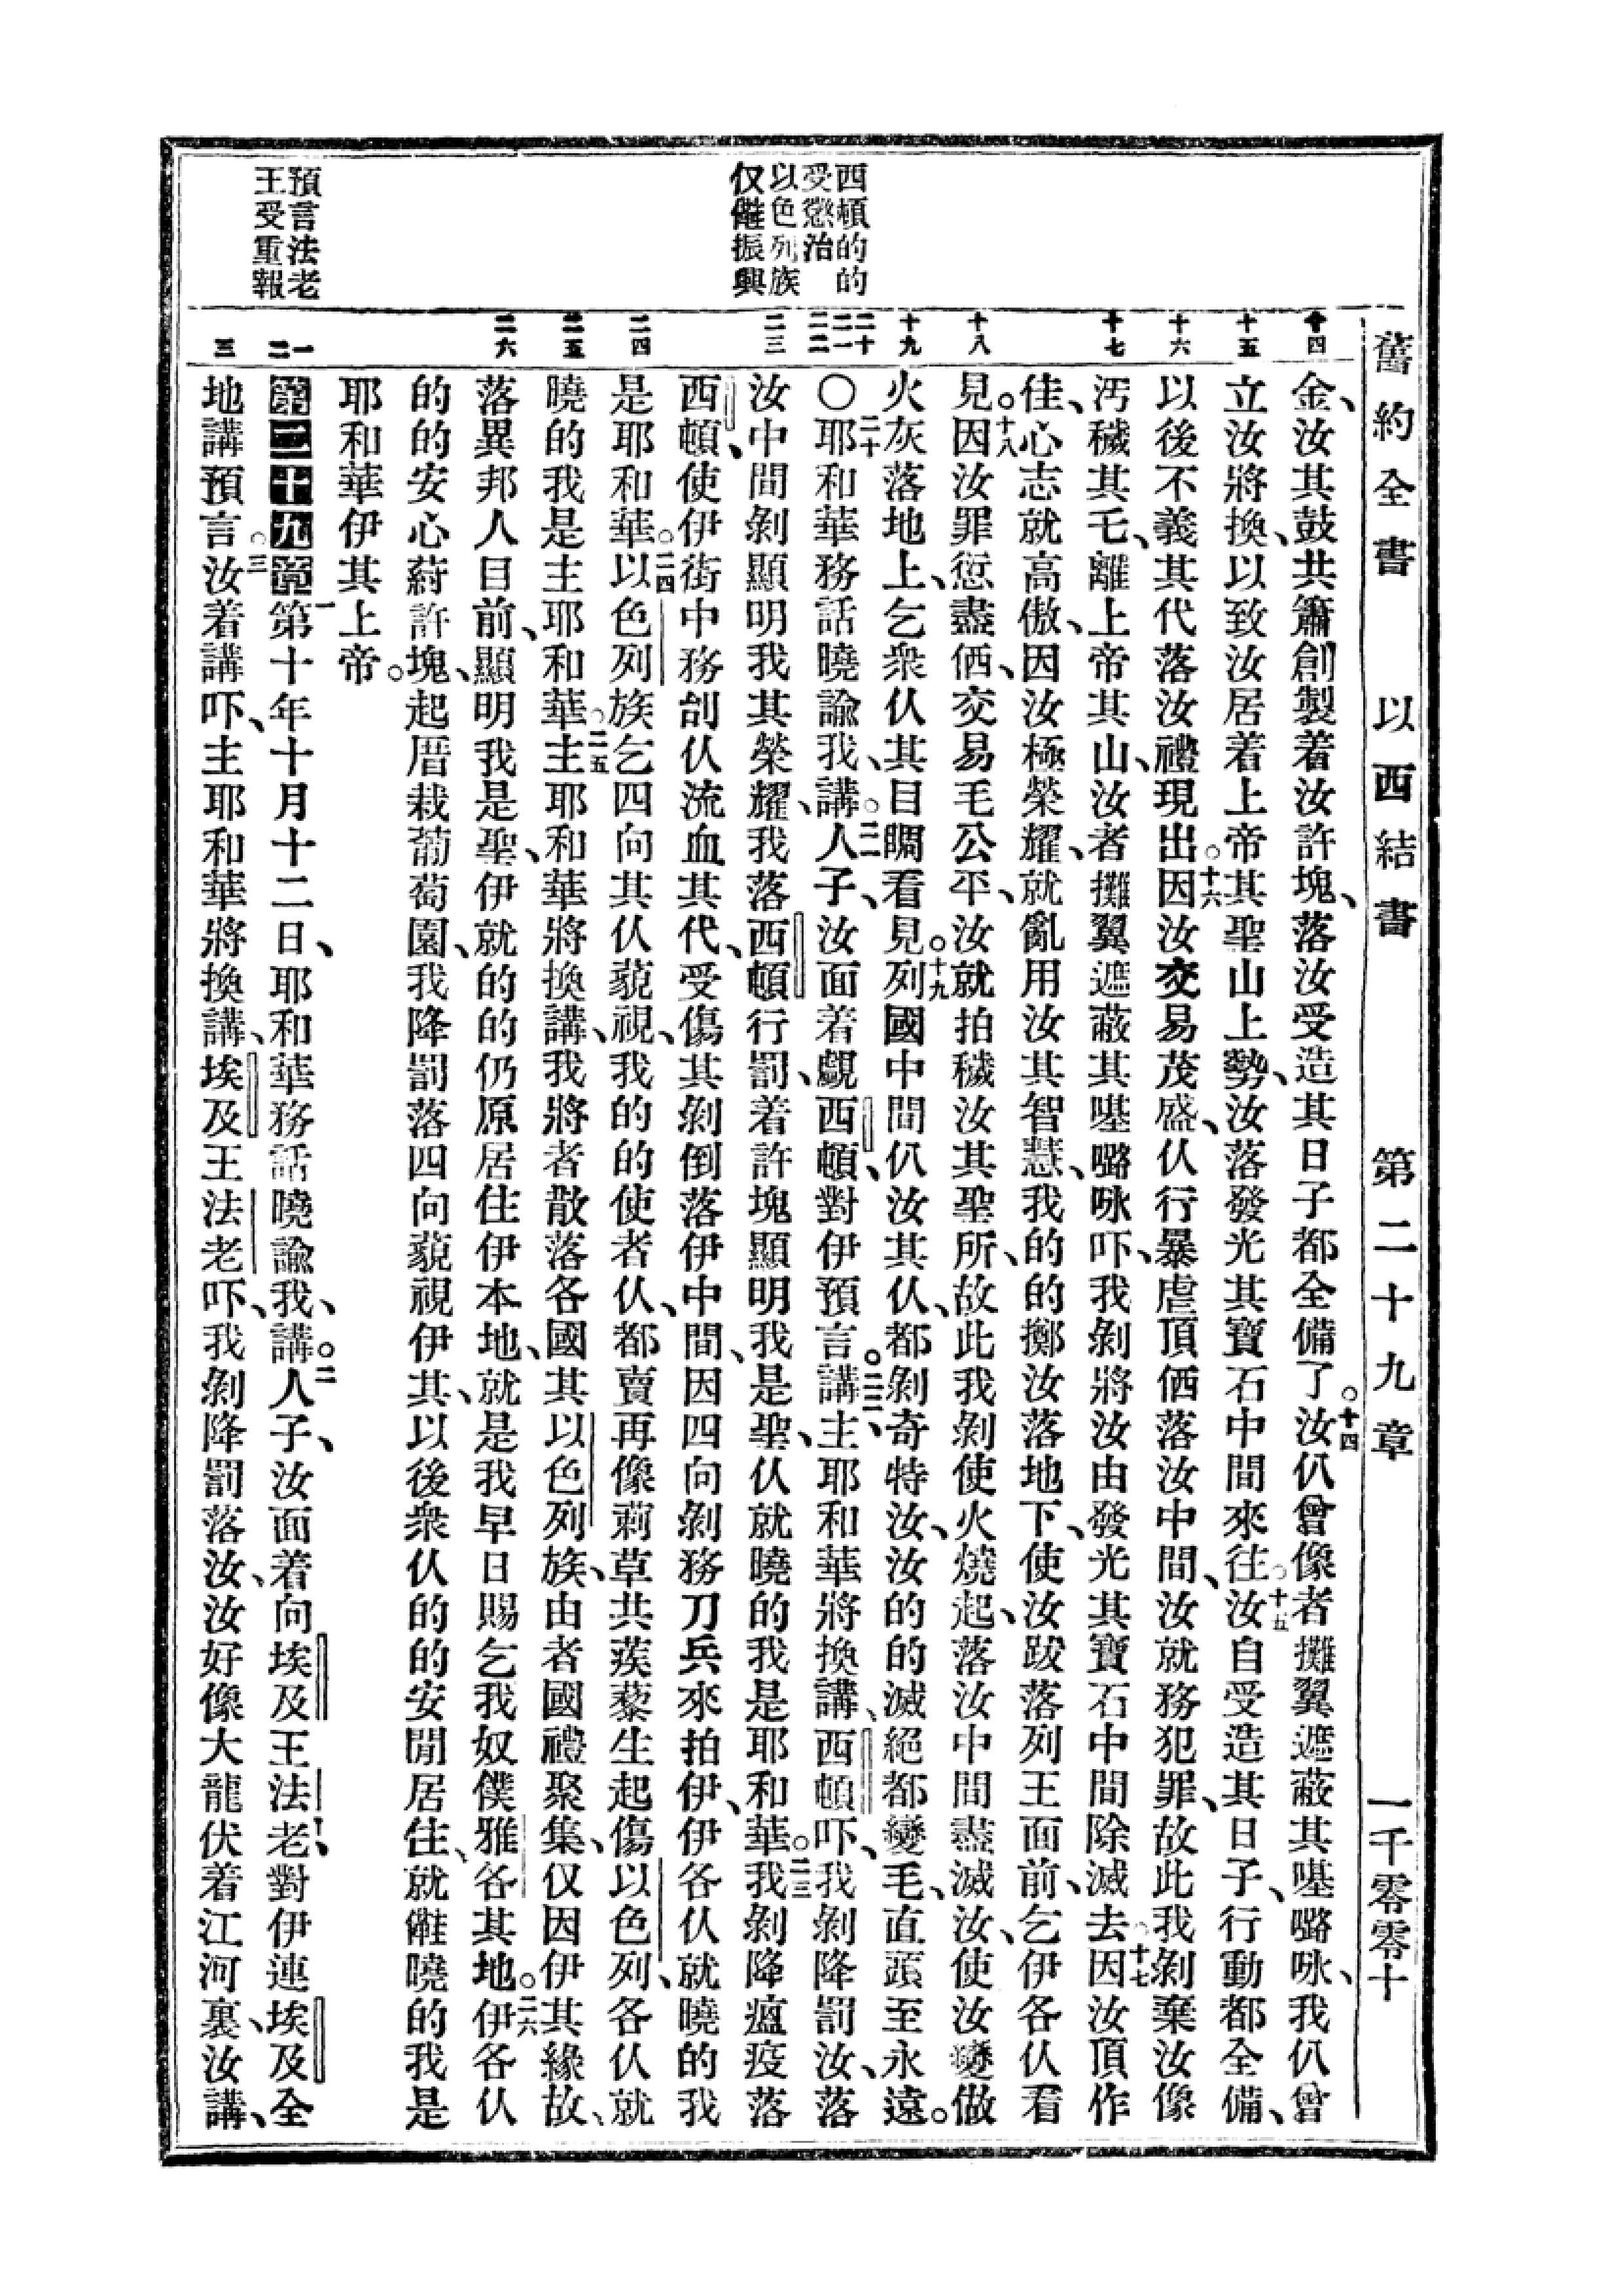 舊約全書 以西結書 第二十九章 一千零零十
西頓的的
受懲治
以色列族
仅㒕振興
預言法老
王受重報
十四
十五
十六
十七
十八
十九
二十
二一
二二
二三
二四
二五
二六
一
二
三
金、汝其鼓共簫創製着汝許塊、落汝受造其日子都全備了。十四汝仈曾像者攤翼遮蔽其𠼻嚕咏、我仈曾
立汝將換、以致汝居着上帝其聖山上勢、汝落發光其寶石中間來往。十五汝自受造其日子、行動都全備、
以後不義其代落汝禮現出。十六因汝交易茂盛、仈行暴虐頂㐁落汝中間、汝就務犯罪、故此我剝棄汝像
汚穢其乇、離上帝其山、汝者攤翼遮蔽其𠼻嚕咏吓、我剝將汝由發光其寶石中間除滅去。十七因汝頂作
佳、心志就高傲、因汝極榮耀、就亂用汝其智慧、我的的擲汝落地下、使汝跋落列王面前、乞伊各仈看
見。十八因汝罪愆盡㐁、交易毛公平、汝就拍穢汝其聖所、故此我剝使火燒起、落汝中間盡滅汝、使汝變做
火灰落地上、乞衆仈其目睭看見。十九列國中間仈汝其仈、都剝奇特汝、汝的的滅絕都變毛、直頭至永遠。
〇二十耶和華務話曉諭我、講。二一人子、汝面着覷西頓、對伊預言講。二二主耶和華將換講、西頓吓、我剝降罰汝、落
汝中間剝顯明我其榮耀、我落西頓行罰、着許塊顯明我是聖、仈就曉的我是耶和華。二三我剝降瘟疫落
西頓、使伊街中務刣仈流血其代、受傷其剝倒落伊中間、因四向剝務刀兵來拍伊、伊各仈就曉的我
是耶和華。二四以色列族乞四向其仈藐視、我的的使者仈、都賣再像莿草共蒺藜生起傷以色列、各仈就
曉的我是主耶和華。二五主耶和華將換講、我將者散落各國其以色列族、由者國禮聚集、仅因伊其緣故、
落異邦人目前、顯明我是聖、伊就的的仍原居住伊本地、就是我早日賜乞我奴僕雅各其地。二六伊各仈
的的安心蒔許塊、起厝栽葡萄園、我降罰落四向藐視伊其、以後衆仈的的安閒居住、就㒕曉的我是
耶和華伊其上帝。
第二十九章 一第十年十月十二日、耶和華務話曉諭我、講。二人子、汝面着向埃及王法老、對伊連埃及全
地講預言。三汝着講吓、主耶和華將換講、埃及王法老吓、我剝降罰落汝、汝好像大龍伏着江河裏、汝講、